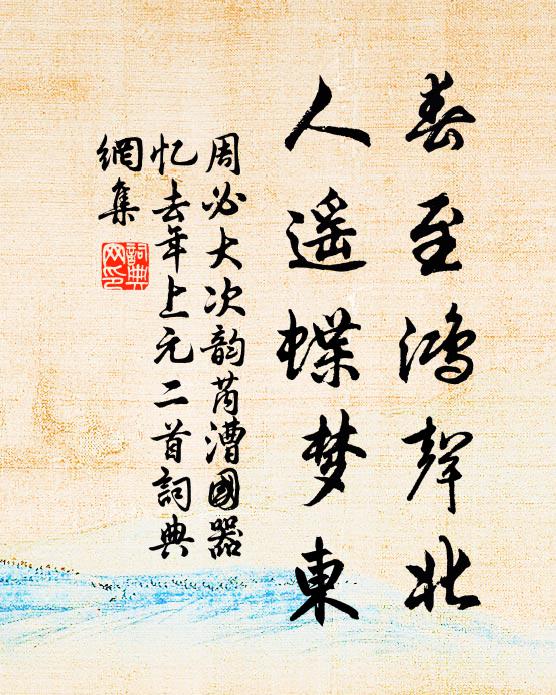 春至鸿聲北
人遥蝶梦東
周必大次韵芮漕國器
忆去年上元二首詞典
網集
詞典
网印